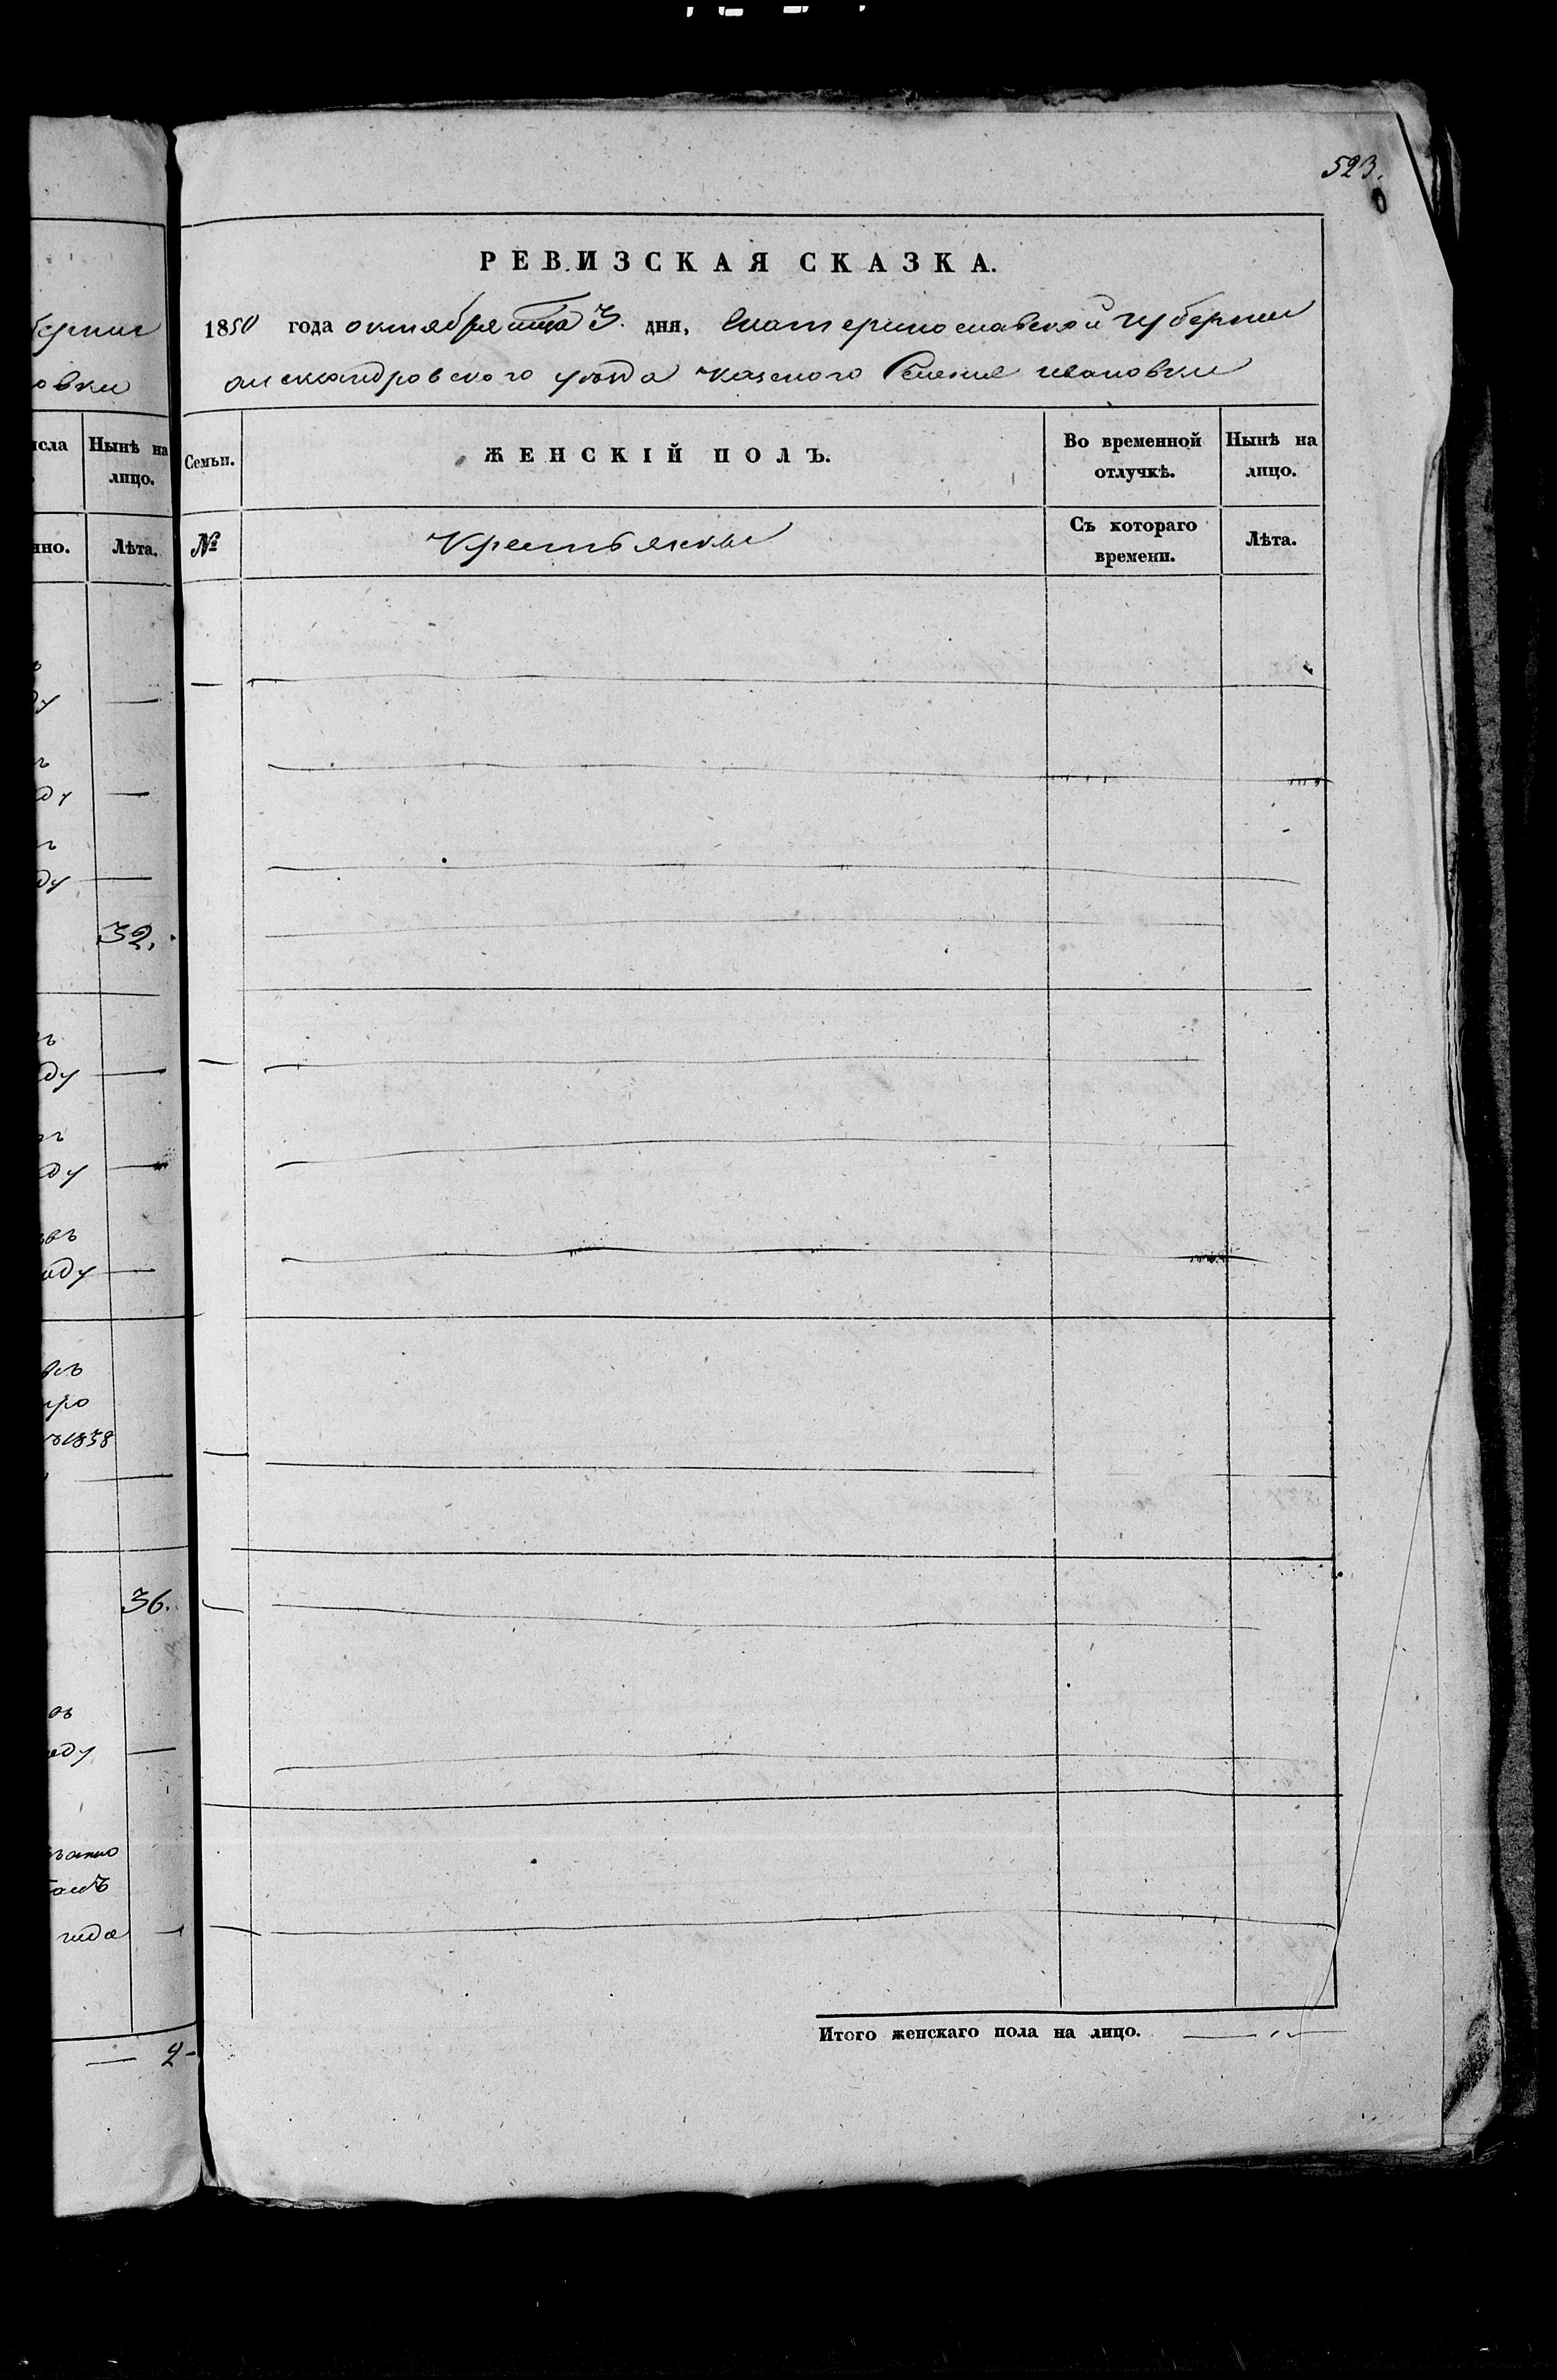 523.
РЕВИЗСКАЯ СКАЗКА.
1850 года октября мца 3. дня, Екатеринославской губернии
александровского уѣзда казеного Селения ивановки
Семьи.
ЖЕНСКІЙ ПОЛЪ.
Во временной отлучкѣ.
Нынѣ на лицо.
№
Крестьянскы
Съ котораго времени.
Лѣта.
Итого женскаго пола на лицо.
овки
Нынѣ на лицо.
Лѣта.
ду
32.
ду
ду
1838
36.
года
2